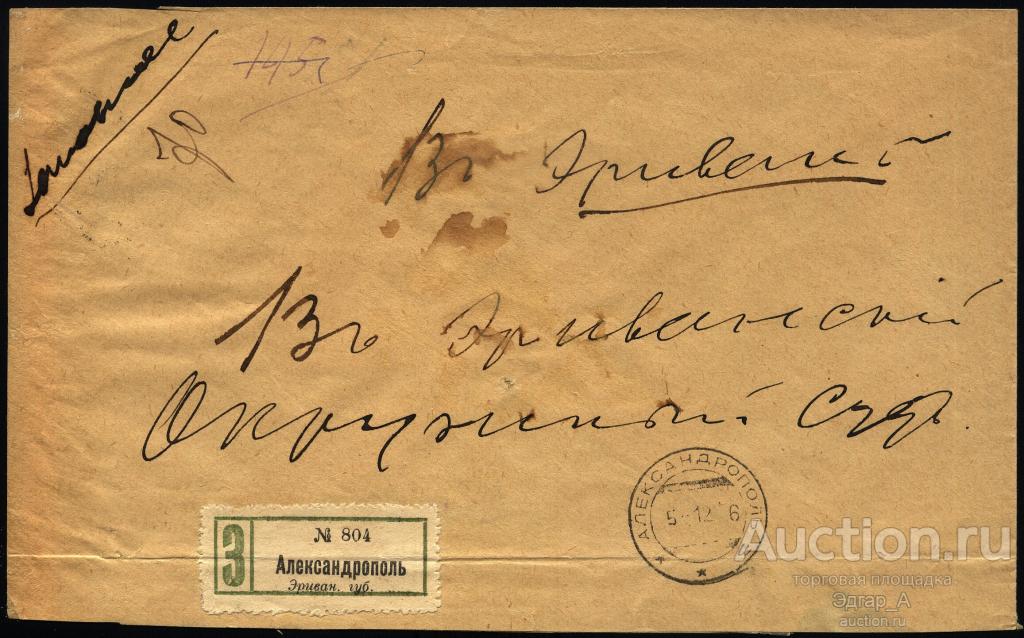 Заказное
Въ Эривань
Въ Эриванскій
Окружный Судъ.
АЛЕКСАНДРОПОЛЬ
5 12 6
З
№ 804
Александрополь
Эриван. губ.
Auction.ru
торговая площадка
Эдгар_А
auction.ru